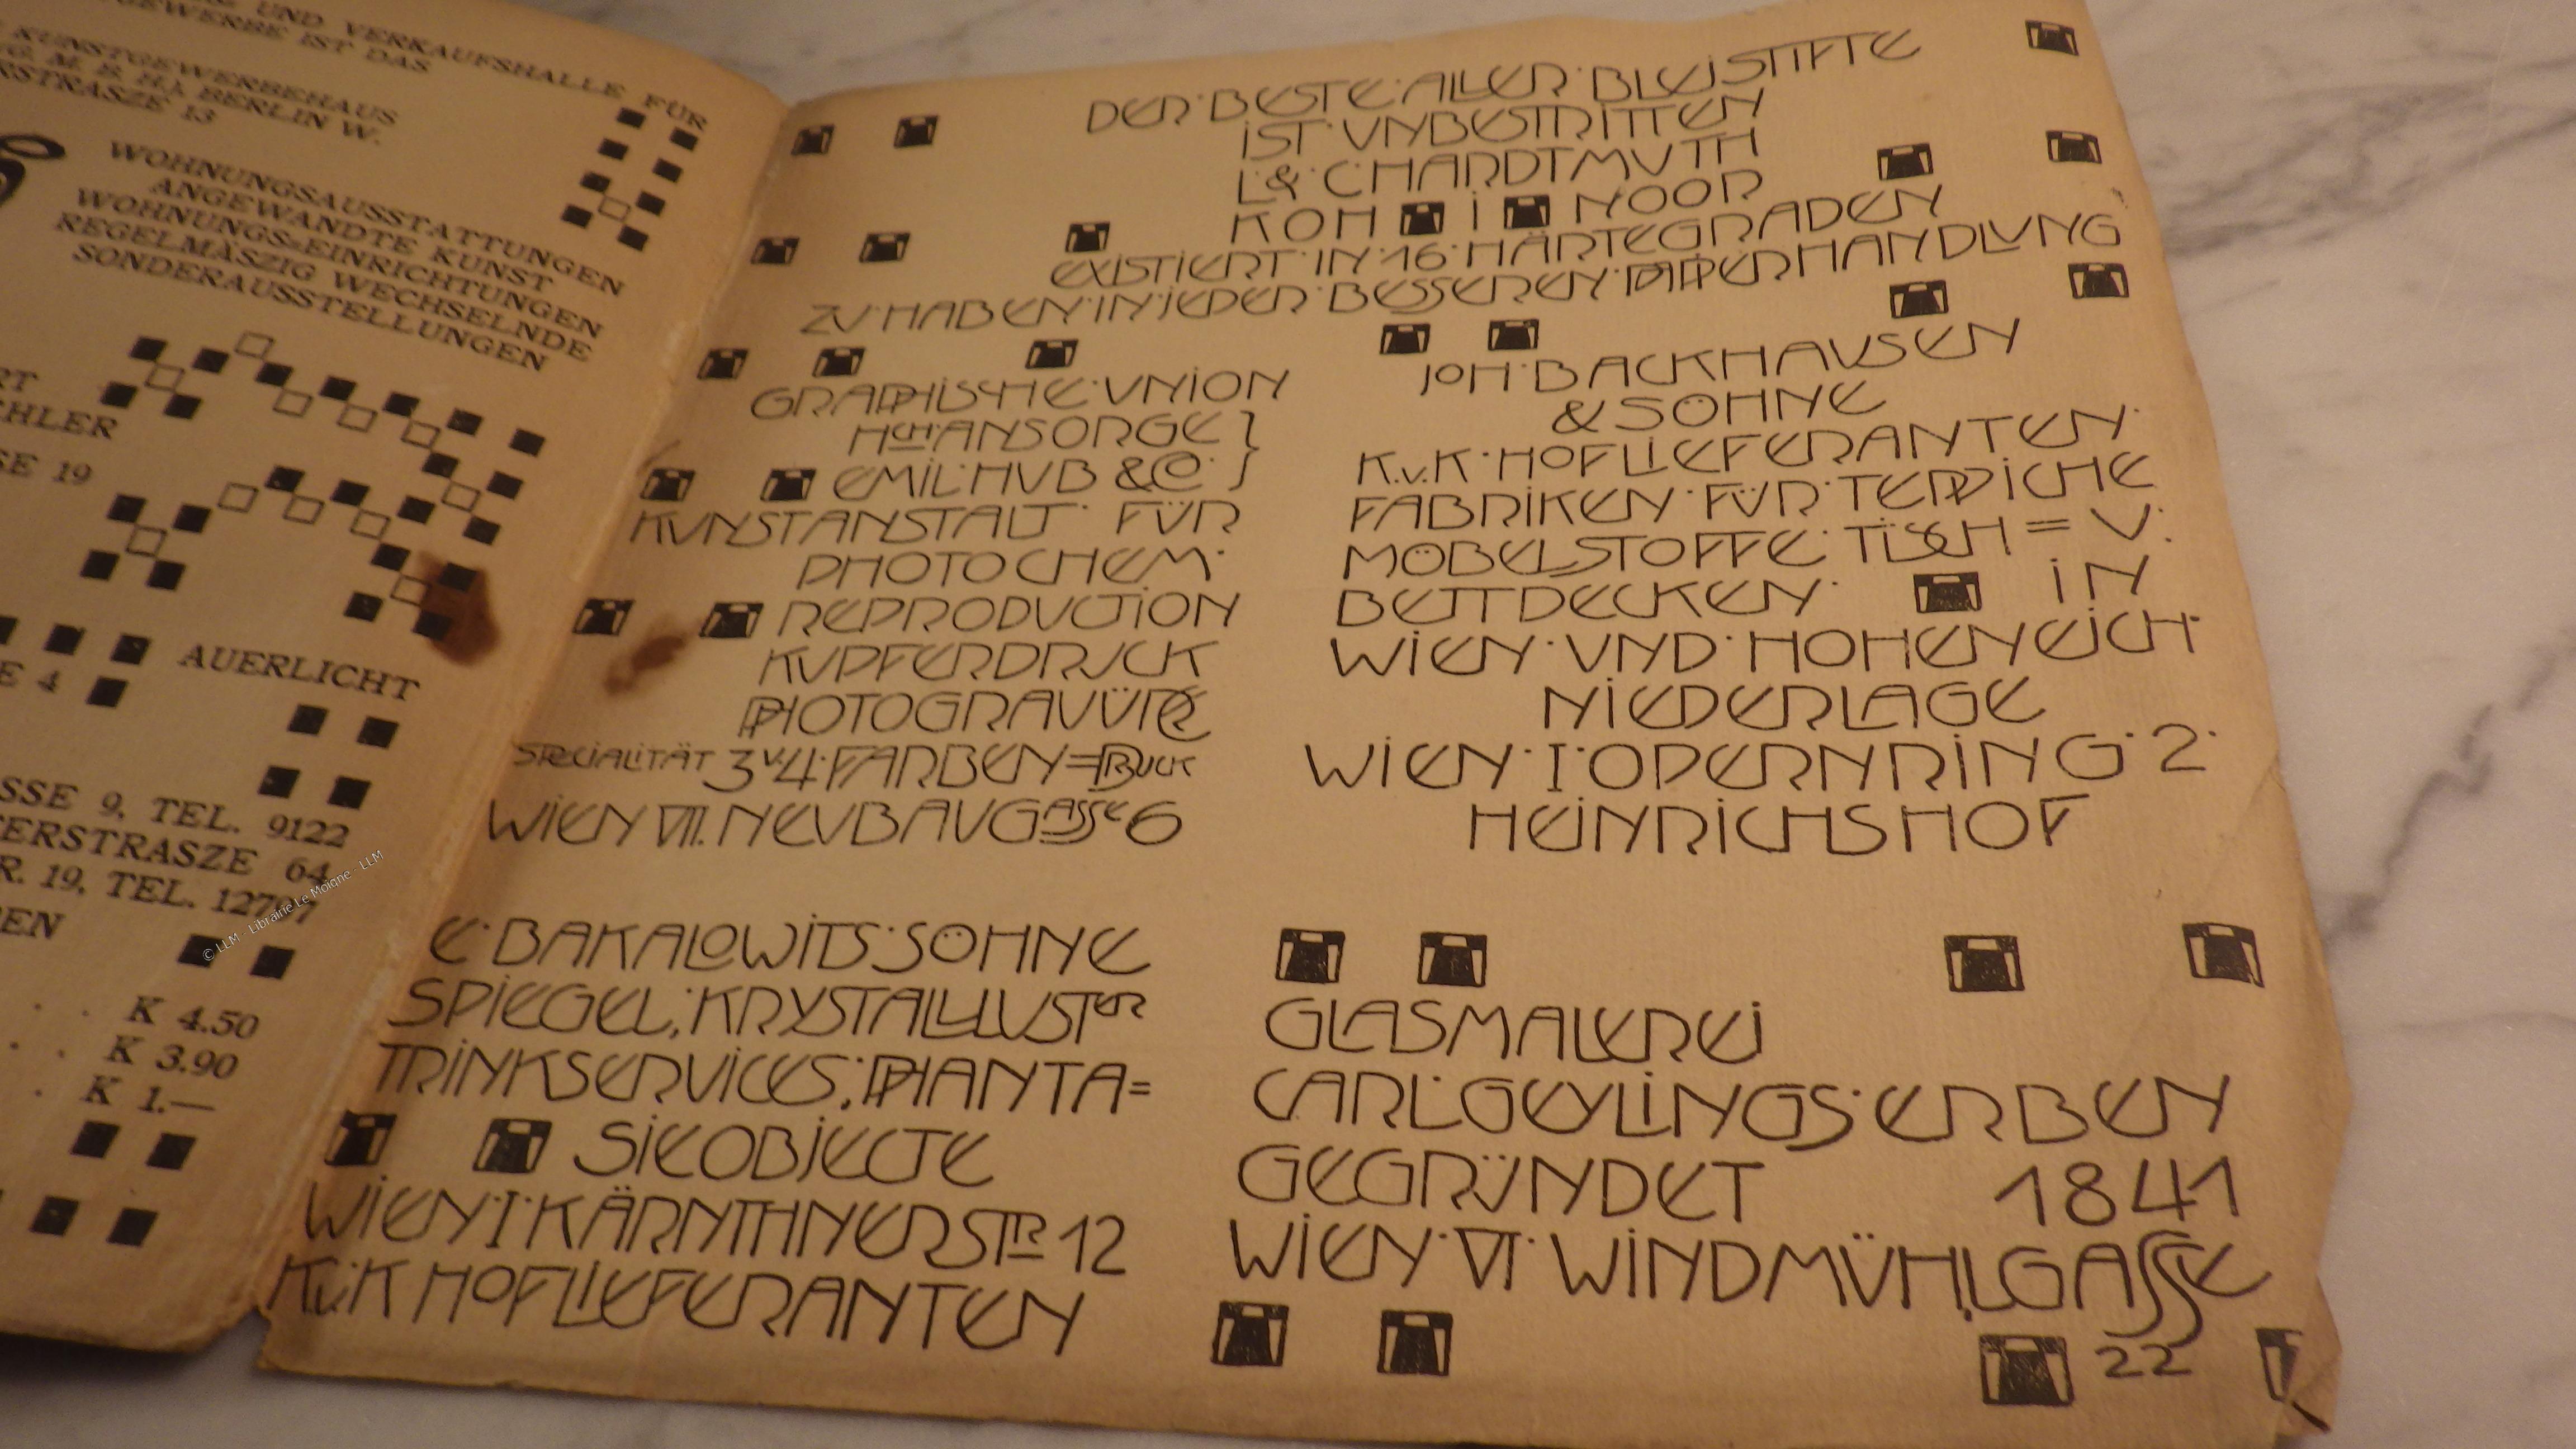 UND VERKAUFSHALLE FÜR
GEWERBE IST DAS
KUNSTGEWERBEHAUS
G. M. B. H.), BERLIN W.
RSTRASZE 13
WOHNUNGSAUSSTATTUNGEN
ANGEWANDTE KUNST
WOHNUNGS=EINRICHTUNGEN
REGELMÄSZIG WECHSELNDE
SONDERAUSSTELLUNGEN
RT
CHLER
SE 19
AUERLICHT
E 4
SSE 9, TEL. 9122
TERSTRASZE 64
R. 19, TEL. 12797
EN
. . K 4.50
. . K 3.90
. K 1.—
© LLM - Librairie Le Moigne - LLM
DER·BESTE·ALLER·BLEISTIFTE
IST·VNBESTRITTEN
L·&·C·HARDTMVTH
KOH I NOOR
EXISTIERT·IN·16·HÄRTEGRADEN
ZV·HABEN·IN·JEDER·BESSEREN·PAPIERHANDLVNG
GRAPHISCHE·VNION
HCH·ANSORGE }
EMIL·HVB &Co· }
KVNSTANSTALT· FÜR
PHOTOCHEM·
REPRODVCTION
KVPFERDRVCK
PHOTOGRAVÜRE
SPECIALITÄT 3 V·4·FARBEN=DRUCK
WIEN VII. NEVBAVGASSE 6
JOH·BACKHAVSEN
& SÖHNE
K.v.K·HOFLIEFERANTEN·
FABRIKEN·FÜR·TEPPICHE
MÖBELSTOFFE·TISCH=V·
BETTDECKEN· IN
WIEN·VND·HOHENEICH·
NIEDERLAGE
WIEN·I·OPERNRING·2·
HEINRICHSHOF
E·BAKALOWITS·SÖHNE
SPIEGEL,·KRYSTALLLUSTER
TRINKSERVICES,·PHANTA=
SIEOBJECTE
WIEN·I·KÄRNTHNERSTR 12
K.v.K HOFLIEFERANTEN
GLASMALEREI
CARL·GEYLINGS·ERBEN
GEGRÜNDET 1841
WIEN·VI·WINDMÜHLGASSE
22